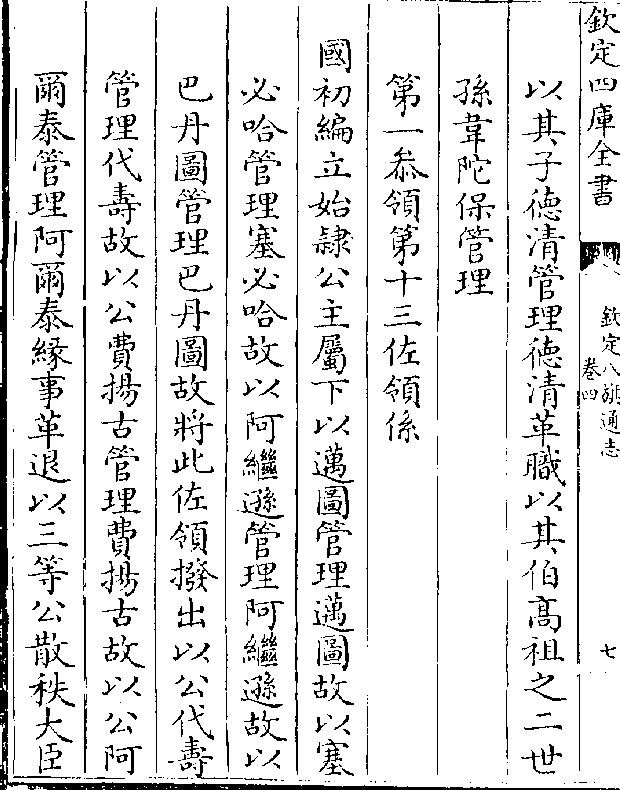 欽定四庫全書
欽定八旗通志
卷四
七
以其子徳清管理徳清革職以其伯髙祖之二世
孫韋陀保管理
第一叅領第十三佐領係
國初編立始隷公主屬下以邁圖管理邁圖故以塞
必哈管理塞必哈故以阿繼遜管理阿繼遜故以
巴丹圖管理巴丹圖故將此佐領撥出以公代壽
管理代壽故以公費揚古管理費揚古故以公阿
爾泰管理阿爾泰縁事革退以三等公散秩大臣